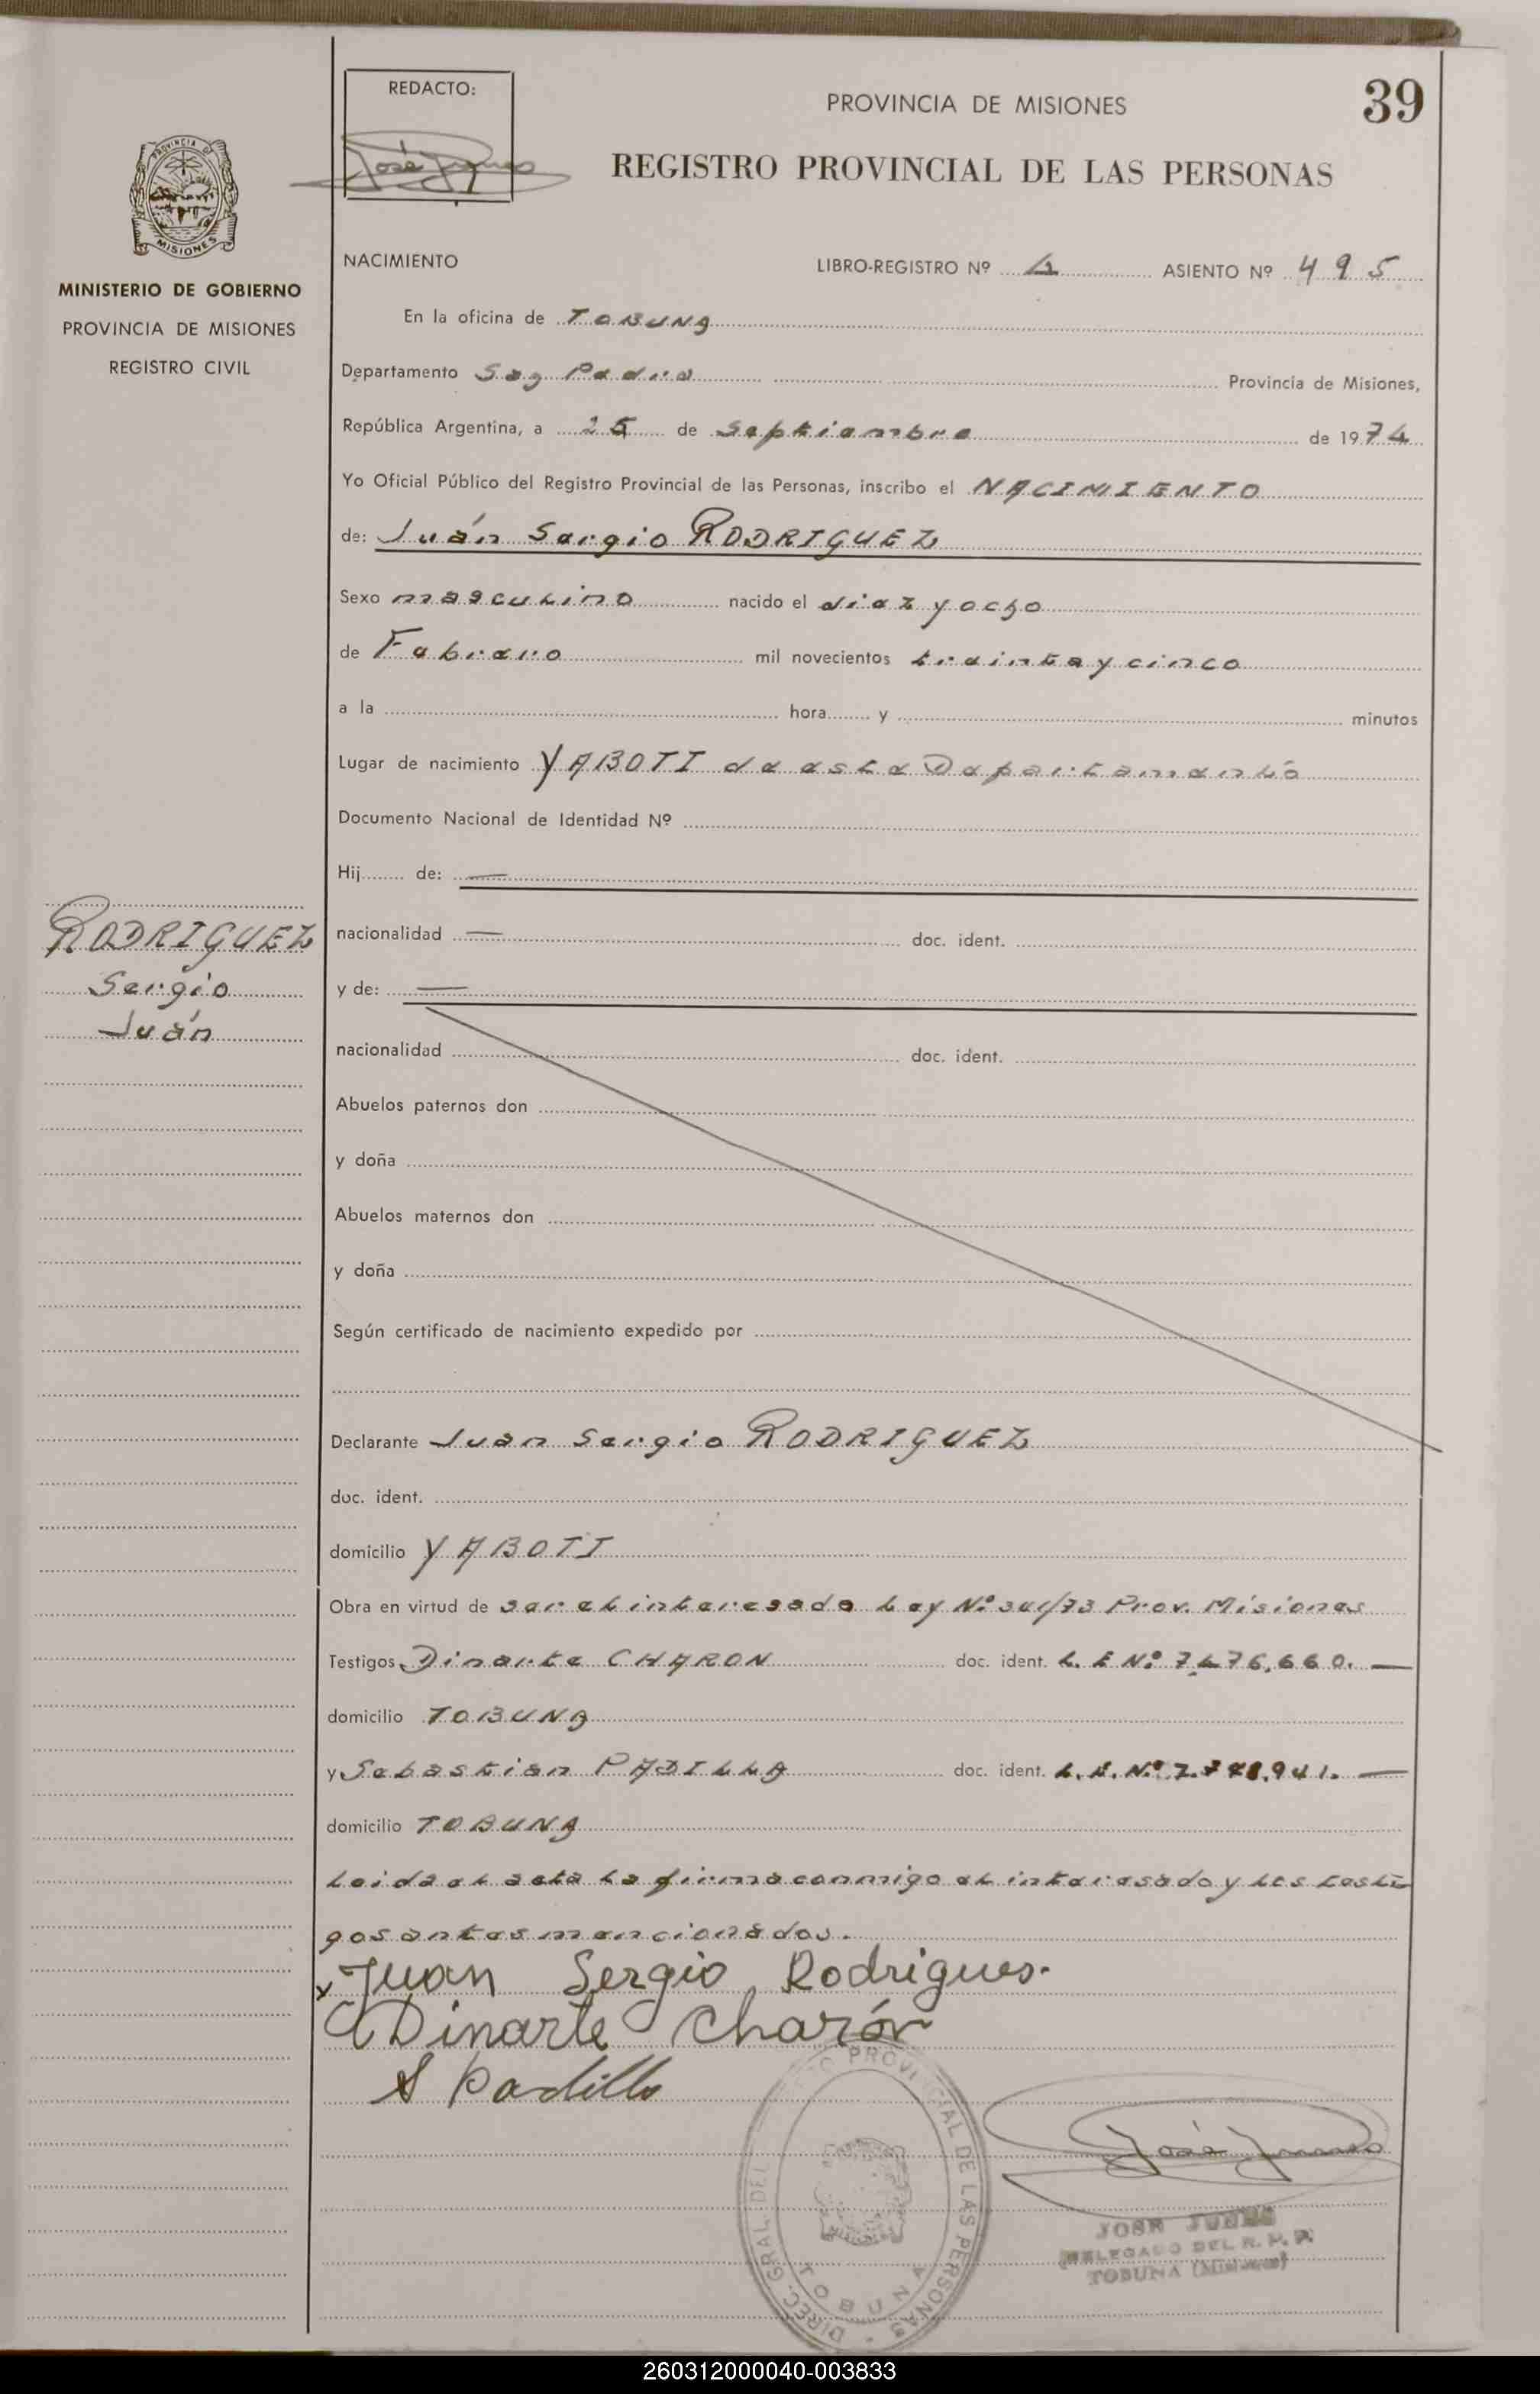 REDACTO:
PROVINCIA DE MISIONES
39
REGISTRO PROVINCIAL DE LAS PERSONAS
PROVINCIA DE
MISIONES
MINISTERIO DE GOBIERNO
PROVINCIA DE MISIONES
REGISTRO CIVIL
NACIMIENTO LIBRO-REGISTRO Nº 4 ASIENTO Nº 495
En la oficina de TOBUNA
Departamento San Pedro Provincia de Misiones,
República Argentina, a 25 de Septiembre de 1974
Yo Oficial Público del Registro Provincial de las Personas, inscribo el NACIMIENTO
de: Juán Sergio RODRIGUEZ
Sexo masculino nacido el diez y ocho
de Febrero mil novecientos treinta y cinco
a la hora y minutos
Lugar de nacimiento YABOTI de este Departamento
Documento Nacional de Identidad Nº
Hij de: —
RODRIGUEZ
Sergio
Juán
nacionalidad — doc. ident.
y de: —
nacionalidad doc. ident.
Abuelos paternos don
y doña
Abuelos maternos don
y doña
Según certificado de nacimiento expedido por
Declarante Juan Sergio RODRIGUEZ
doc. ident.
domicilio YABOTI
Obra en virtud de ser el interesado Ley Nº 341/73 Prov. Misiones
Testigos Dinarte CHARON doc. ident. L. E Nº 7.476.660. —
domicilio TOBUNA
y Sebastian PADILLA doc. ident. L. E. Nº —
domicilio TOBUNA
Leida el acta la firma conmigo el interesado y los testi
gos antes mencionados.
x Juan Sergio Rodrigues.
Dinarte Charón
S Padilla
DIREC. GRAL. DEL PROVINCIAL DE LAS PERSONAS
TOBUNA
JOSE
DELEGADO DEL R. P. P.
TOBUNA (Misiones)
260312000040-003833